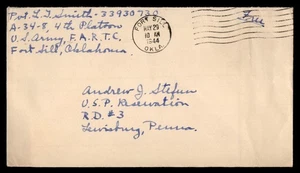 Pvt. L. I. Smith - 33930730
A-34-8, 4th Platoon
U.S. Army, F.A.R.T.C.
Fort Sill, Oklahoma.
FORT SILL
MAY 29
10 AM
1944
OKLA.
Free
Andrew J. Stefun
U.S.P. Reservation
R.D. #3
Lewisburg, Penna.